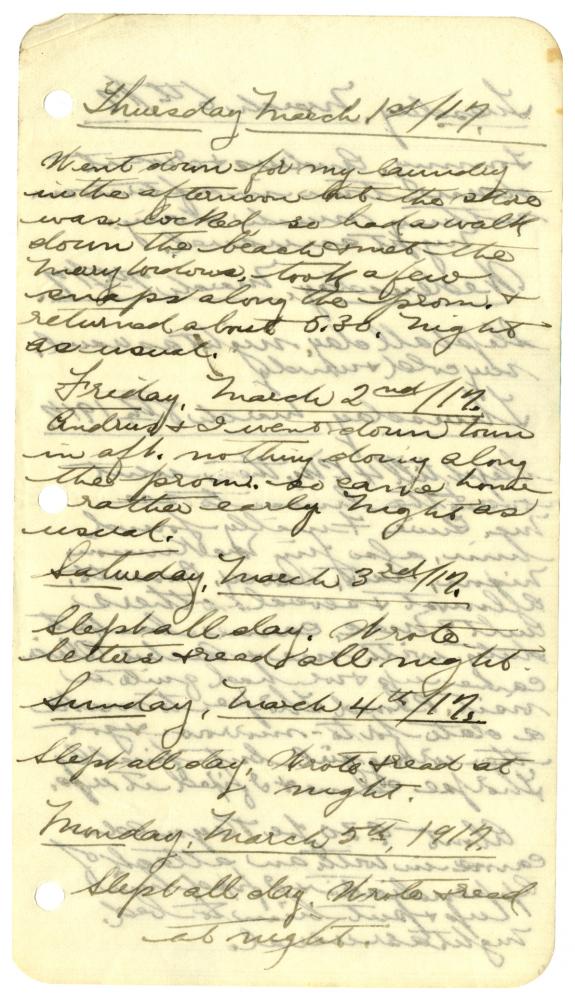 Thursday March 1st/17.
Went down for my laundry
in the afternoon but the store
was locked, so had a walk
down the beach & met the
Mary widows, took a few
snaps along the prom. &
returned about 5.30. Night
as usual.
Friday, March 2nd/17.
Andrus & I went down town
in aft. nothing doing along
the prom. so came home
rather early. Night as
usual.
Saturday, March 3rd/17.
Slept all day. Wrote
letters & read all night.
Sunday, March 4th/17.
Slept all day, Wrote & read at
night.
Monday, March 5th, 1917.
Slept all day. Wrote & read
at night.